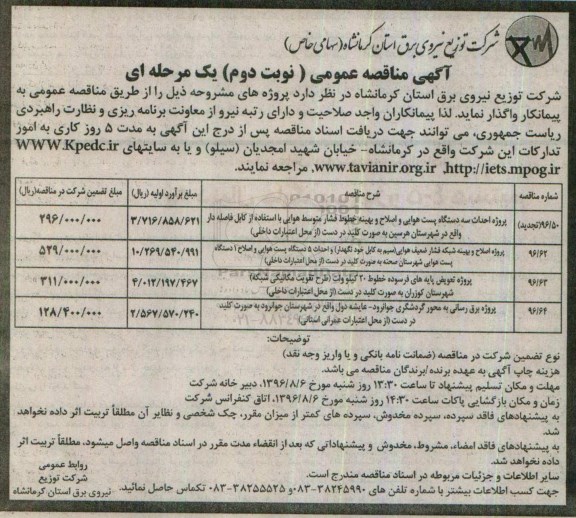 شرکت توزیع نیروی برق استان کرمانشاه (سهامی خاص)
آگهی مناقصه عمومی ( نوبت دوم) یک مرحله ای
شرکت توزیع نیروی برق استان کرمانشاه در نظر دارد پروژه های مشروحه ذیل را از طریق مناقصه عمومی به
پیمانکار واگذار نماید. لذا پیمانکاران واجد صلاحیت و دارای رتبه نیرو از معاونت برنامه ریزی و نظارت راهبردی
ریاست جمهوری، می توانند جهت دریافت اسناد مناقصه پس از درج این آگهی به مدت ۵ روز کاری به امور
تدارکات این شرکت واقع در کرمانشاه- خیابان شهید امجدیان (سیلو) و یا به سایتهای WWW.Kpedc.ir
www.tavanir.org.ir ،http://iets.mpog.ir، مراجعه نمایند.
شماره مناقصه شرح مناقصه مبلغ برآورد اولیه (ریال) مبلغ تضمین شرکت در مناقصه(ریال)
۹۶/۵۰(تجدید) پروژه احداث سه دستگاه پست هوایی و اصلاح و بهینه خطوط فشار متوسط هوایی با استفاده از کابل فاصله دار ۳/۷۱۶/۸۵۸/۶۲۱ ۲۹۶/۰۰۰/۰۰۰
واقع در شهرستان هرسین به صورت کلید در دست (از محل اعتبارات داخلی)
۹۶/۶۲ پروژه اصلاح و بهینه شبکه فشار ضعیف هوایی(سیم به کابل خود نگهدار) و احداث ۵ دستگاه پست هوایی و اصلاح ۱ دستگاه ۱۰/۲۶۹/۵۴۰/۹۹۱ ۵۳۹/۰۰۰/۰۰۰
پست هوایی شهرستان صحنه به صورت کلید در دست (از محل اعتبارات داخلی)
۹۶/۶۳ پروژه تعویض پایه های فرسوده خطوط ۲۰ کیلو وات (طرح تقویت مکانیکی شبکه) ۴/۰۱۲/۱۹۷/۴۶۷ ۳۱۱/۰۰۰/۰۰۰
شهرستان کوزران به صورت کلید در دست (از محل اعتبارات داخلی)
۹۶/۶۴ پروژه برق رسانی به محور گردشگری جوانرود- عایشه دول واقع در شهرستان جوانرود به صورت کلید ۲/۵۶۷/۵۷۰/۲۴۰ ۱۲۸/۴۰۰/۰۰۰
در دست (از محل اعتبارات عمرانی استانی)
توضیحات:
نوع تضمین شرکت در مناقصه (ضمانت نامه بانکی و یا واریز وجه نقد)
هزینه چاپ آگهی به عهده برنده/برندگان مناقصه می باشد.
مهلت و مکان تسلیم پیشنهاد تا ساعت ۱۳:۳۰ روز شنبه مورخ ۱۳۹۶/۸/۶، دبیر خانه شرکت
زمان و مکان بازگشایی پاکات ساعت ۱۴:۳۰ روز شنبه مورخ ۱۳۹۶/۸/۶، اتاق کنفرانس شرکت
به پیشنهادهای فاقد سپرده، سپرده مخدوش، سپرده های کمتر از میزان مقرر، چک شخصی و نظایر آن مطلقاً تربیت اثر داده نخواهد
شد.
به پیشنهادهای فاقد امضاء، مشروط، مخدوش و پیشنهاداتی که بعد از انقضاء مدت مقرر در اسناد مناقصه واصل میشود، مطلقاً تربیت اثر
داده نخواهد شد.
سایر اطلاعات و جزئیات مربوطه در اسناد مناقصه مندرج است.
جهت کسب اطلاعات بیشتر با شماره تلفن های ۰۸۳-۳۸۲۴۵۹۹۰ و ۰۸۳-۳۸۲۵۵۵۲۵ تکماس حاصل نمائید.
روابط عمومی
شرکت توزیع
نیروی برق استان کرمانشاه